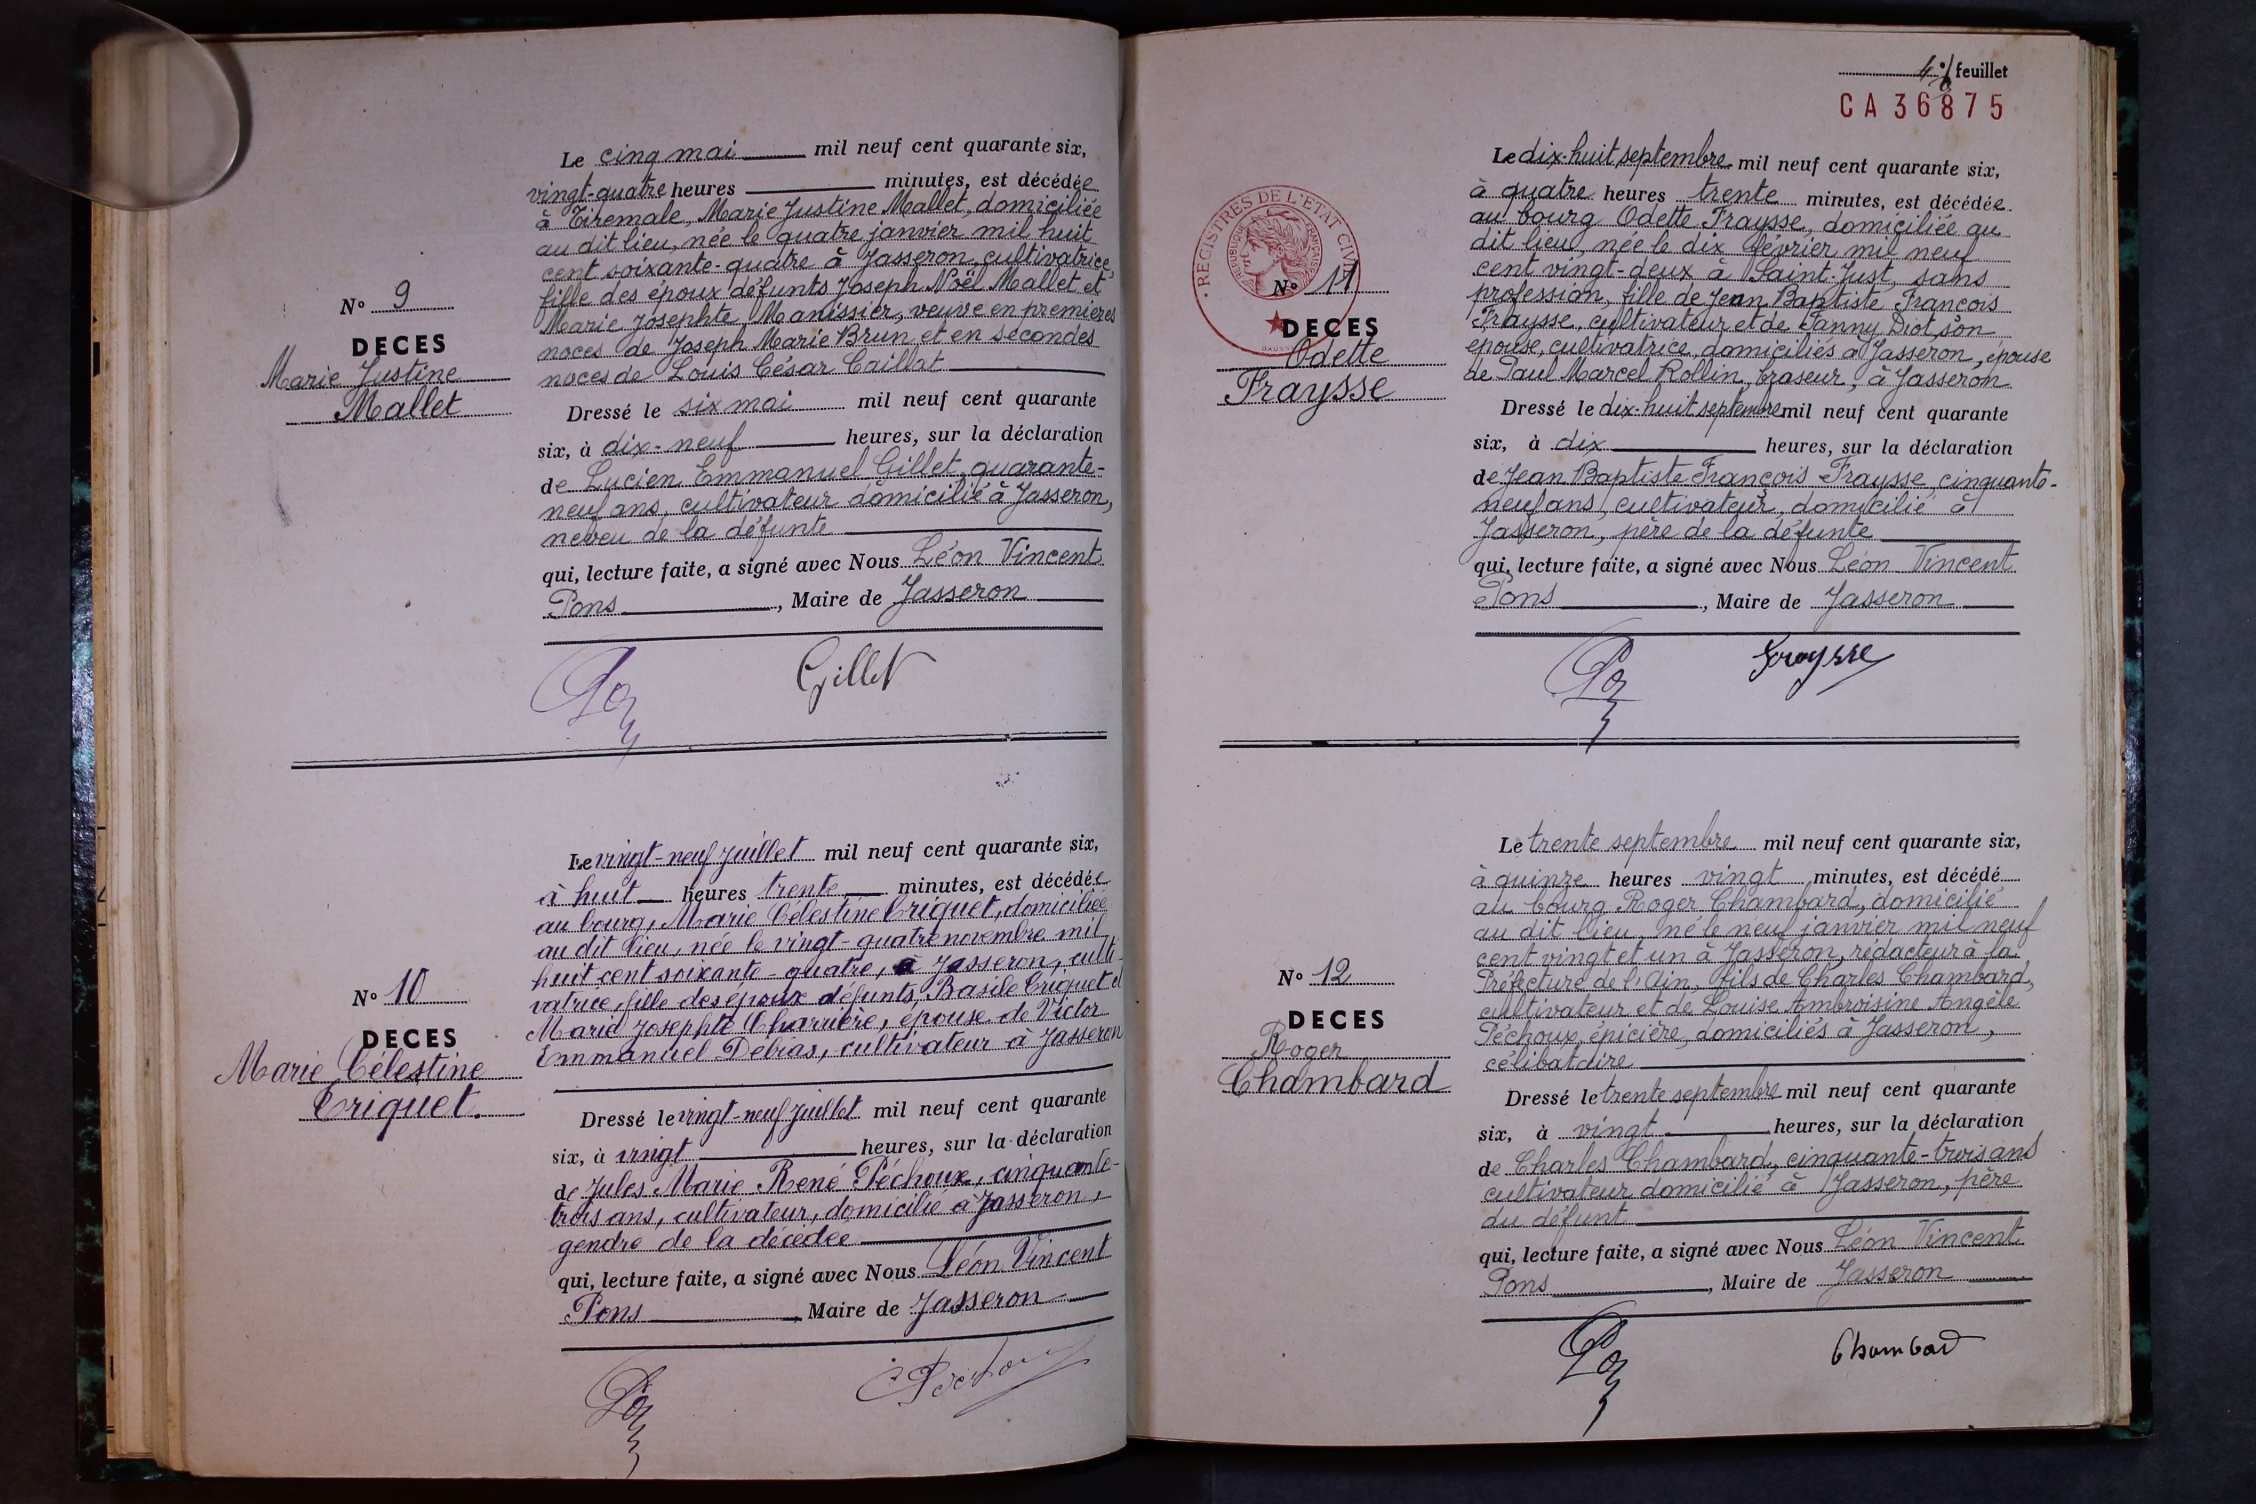 Le cinq mai mil neuf cent quarante six,
vingt-quatre heures minutes, est décédée
à Tiremale, Marie Justine Mallet, domiciliée
au dit lieu, née le quatre janvier mil huit
cent soixante-quatre à Jasseron, cultivatrice,
fille des époux défunts Joseph Noël Mallet et
Marie Josephte Manissier, veuve en premières
noces de Joseph Marie Brun et en secondes
noces de Louis César Caillat
N° 9
DECES
Marie Justine
Mallet
Dressé le six mai mil neuf cent quarante
six, à dix-neuf heures, sur la déclaration
de Lucien Emmanuel Gillet, quarante-
neuf ans, cultivateur domicilié à Jasseron,
neveu de la défunte
qui, lecture faite, a signé avec Nous Léon Vincent
Pons, Maire de Jasseron
Gillet
Le vingt-neuf juillet mil neuf cent quarante six,
à huit heures trente minutes, est décédée
au bourg, Marie Célestine Criquet, domiciliée
au dit lieu, née le vingt-quatre novembre mil
huit cent soixante-quatre, à Jasseron, culti-
vatrice, fille des époux défunts Basile Criquet et
Marie Josephte Charrière, épouse de Victor
Emmanuel Debias, cultivateur à Jasseron
N° 10
DECES
Marie Célestine
Criquet.
Dressé le vingt-neuf juillet mil neuf cent quarante
six, à vingt heures, sur la déclaration
de Jules Marie René Péchoux, cinquante-
trois ans, cultivateur, domicilié à Jasseron,
gendre de la décédée
qui, lecture faite, a signé avec Nous Léon Vincent
Pons, Maire de Jasseron
feuillet
CA 36875
REGISTRES DE L'ETAT CIVIL
Le dix-huit septembre mil neuf cent quarante six,
à quatre heures trente minutes, est décédée
au bourg Odette Fraysse, domiciliée au
dit lieu, née le dix février mil neuf
cent vingt-deux à Saint-Just, sans
profession, fille de Jean Baptiste François
Fraysse, cultivateur et de Fanny Diot, son
épouse, cultivatrice, domiciliés à Jasseron, épouse
de Paul Marcel Rollin, braseur, à Jasseron
N° 11
DECES
Odette
Fraysse
Dressé le dix-huit septembre mil neuf cent quarante
six, à dix heures, sur la déclaration
de Jean Baptiste François Fraysse, cinquante-
neuf ans, cultivateur, domicilié à
Jasseron, père de la défunte
qui, lecture faite, a signé avec Nous Léon Vincent
Pons, Maire de Jasseron
Fraysse
Le trente septembre mil neuf cent quarante six,
à quinze heures vingt minutes, est décédé
au bourg Roger Chambard, domicilié
au dit lieu, né le neuf janvier mil neuf
cent vingt et un à Jasseron, rédacteur à la
Préfecture de l'Ain, fils de Charles Chambard,
cultivateur et de Louise Ambroisine Angèle
Péchoux, épicière, domiciliés à Jasseron,
célibataire
N° 12
DECES
Roger
Chambard
Dressé le trente septembre mil neuf cent quarante
six, à vingt heures, sur la déclaration
de Charles Chambard, cinquante-trois ans
cultivateur domicilié à Jasseron, père
du défunt
qui, lecture faite, a signé avec Nous Léon Vincent
Pons, Maire de Jasseron
Chambard